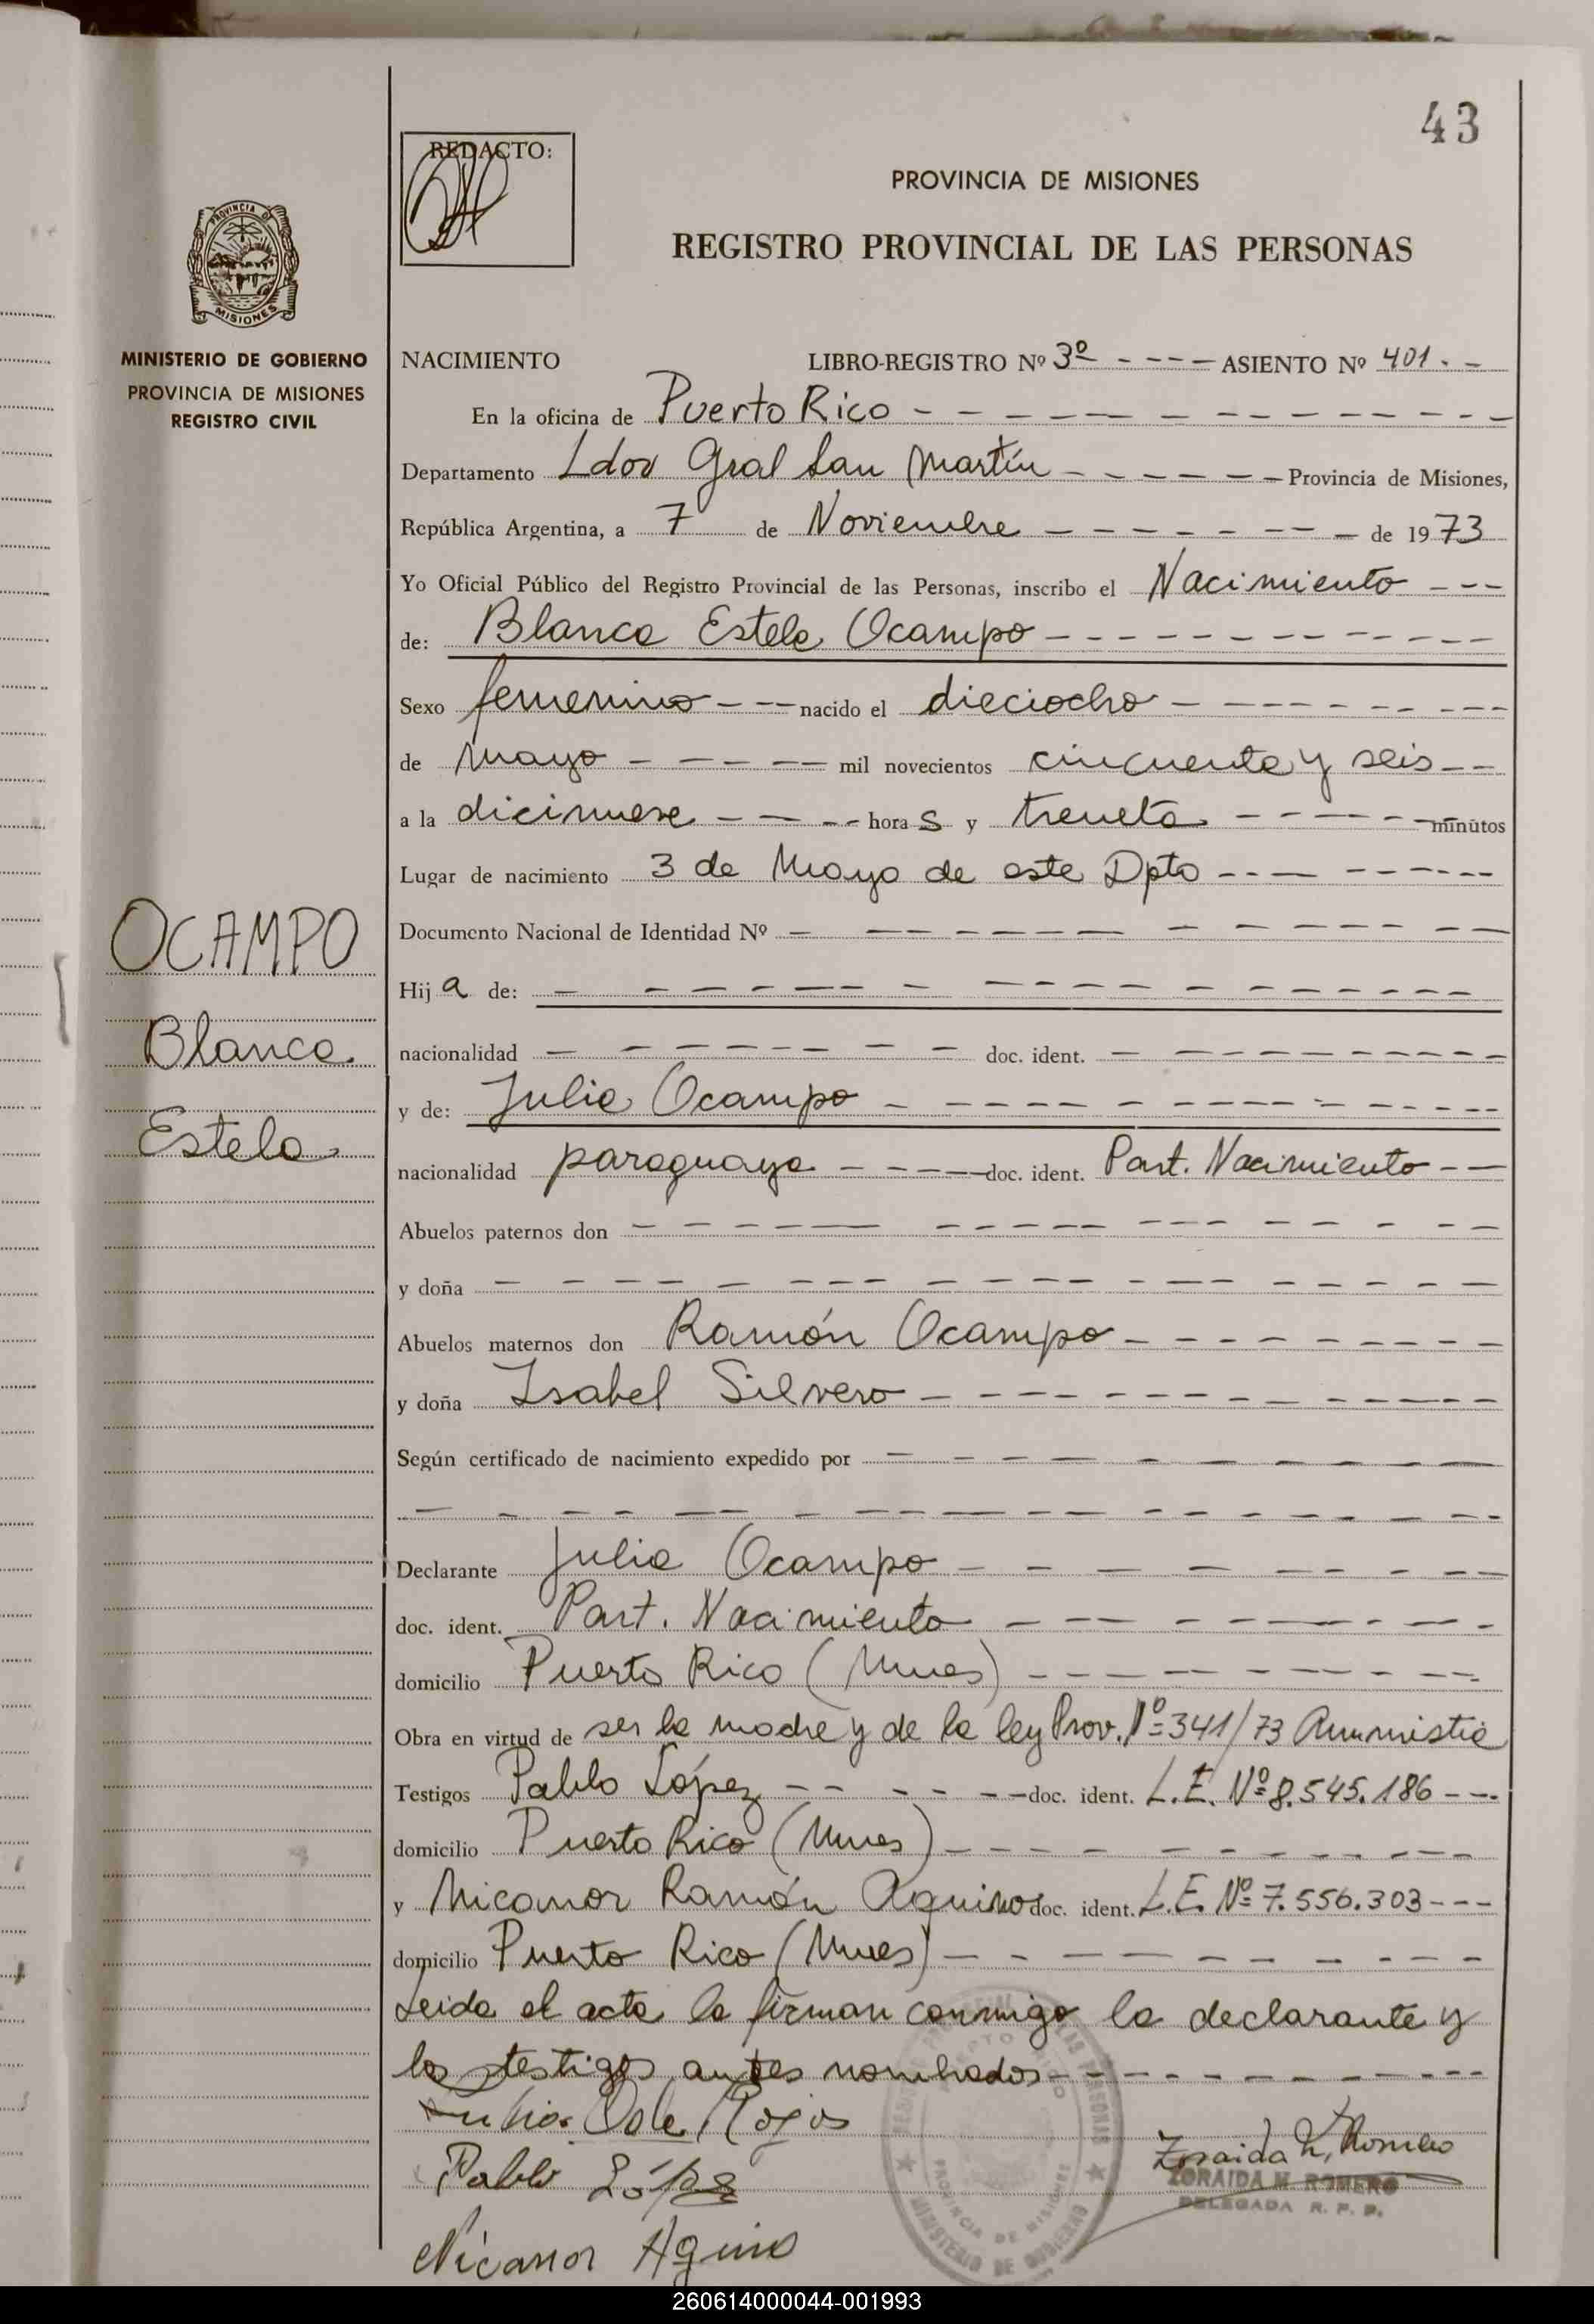 43
REDACTO:
PROVINCIA DE MISIONES
REGISTRO PROVINCIAL DE LAS PERSONAS
PROVINCIA DE
MISIONES
MINISTERIO DE GOBIERNO
PROVINCIA DE MISIONES
REGISTRO CIVIL
OCAMPO
Blanca
Estela
NACIMIENTO LIBRO-REGISTRO Nº 3º - - - - ASIENTO Nº 401 - -
En la oficina de Puerto Rico
Departamento Ldor Gral San Martín Provincia de Misiones,
República Argentina, a 7 de Noviembre de 1973
Yo Oficial Público del Registro Provincial de las Personas, inscribo el Nacimiento
de: Blanca Estela Ocampo
Sexo femenino nacido el dieciocho
de Mayo mil novecientos cincuenta y seis
a la diecinueve horas y treneta minutos
Lugar de nacimiento 3 de Mayo de este Dpto
Documento Nacional de Identidad Nº
Hija de:
nacionalidad doc. ident.
y de: Julia Ocampo
nacionalidad paraguaya doc. ident. Part. Nacimiento
Abuelos paternos don
y doña
Abuelos maternos don Ramón Ocampo
y doña Isabel Silvero
Según certificado de nacimiento expedido por
Declarante Julia Ocampo
doc. ident. Part. Nacimiento
domicilio Puerto Rico (Mnes)
Obra en virtud de ser la madre y de la ley Prov. Nº 341/73 Ammistia
Testigos Pablo López doc. ident. L.E. Nº 8.545.186
domicilio Puerto Rico (Mnes)
y Nicanor Ramón Aquino doc. ident. L.E. Nº 7.556.303
domicilio Puerto Rico (Mnes)
Leida el acta la firman conmigo la declarante y
los testigos antes nombrados
Pablo López
Nicanor Aquino
Zoraida M. Romero
ZORAIDA M. ROMERO
DELEGADA R. P. P.
PROVINCIA DE MISIONES
MINISTERIO DE GOBIERNO
260614000044-001993